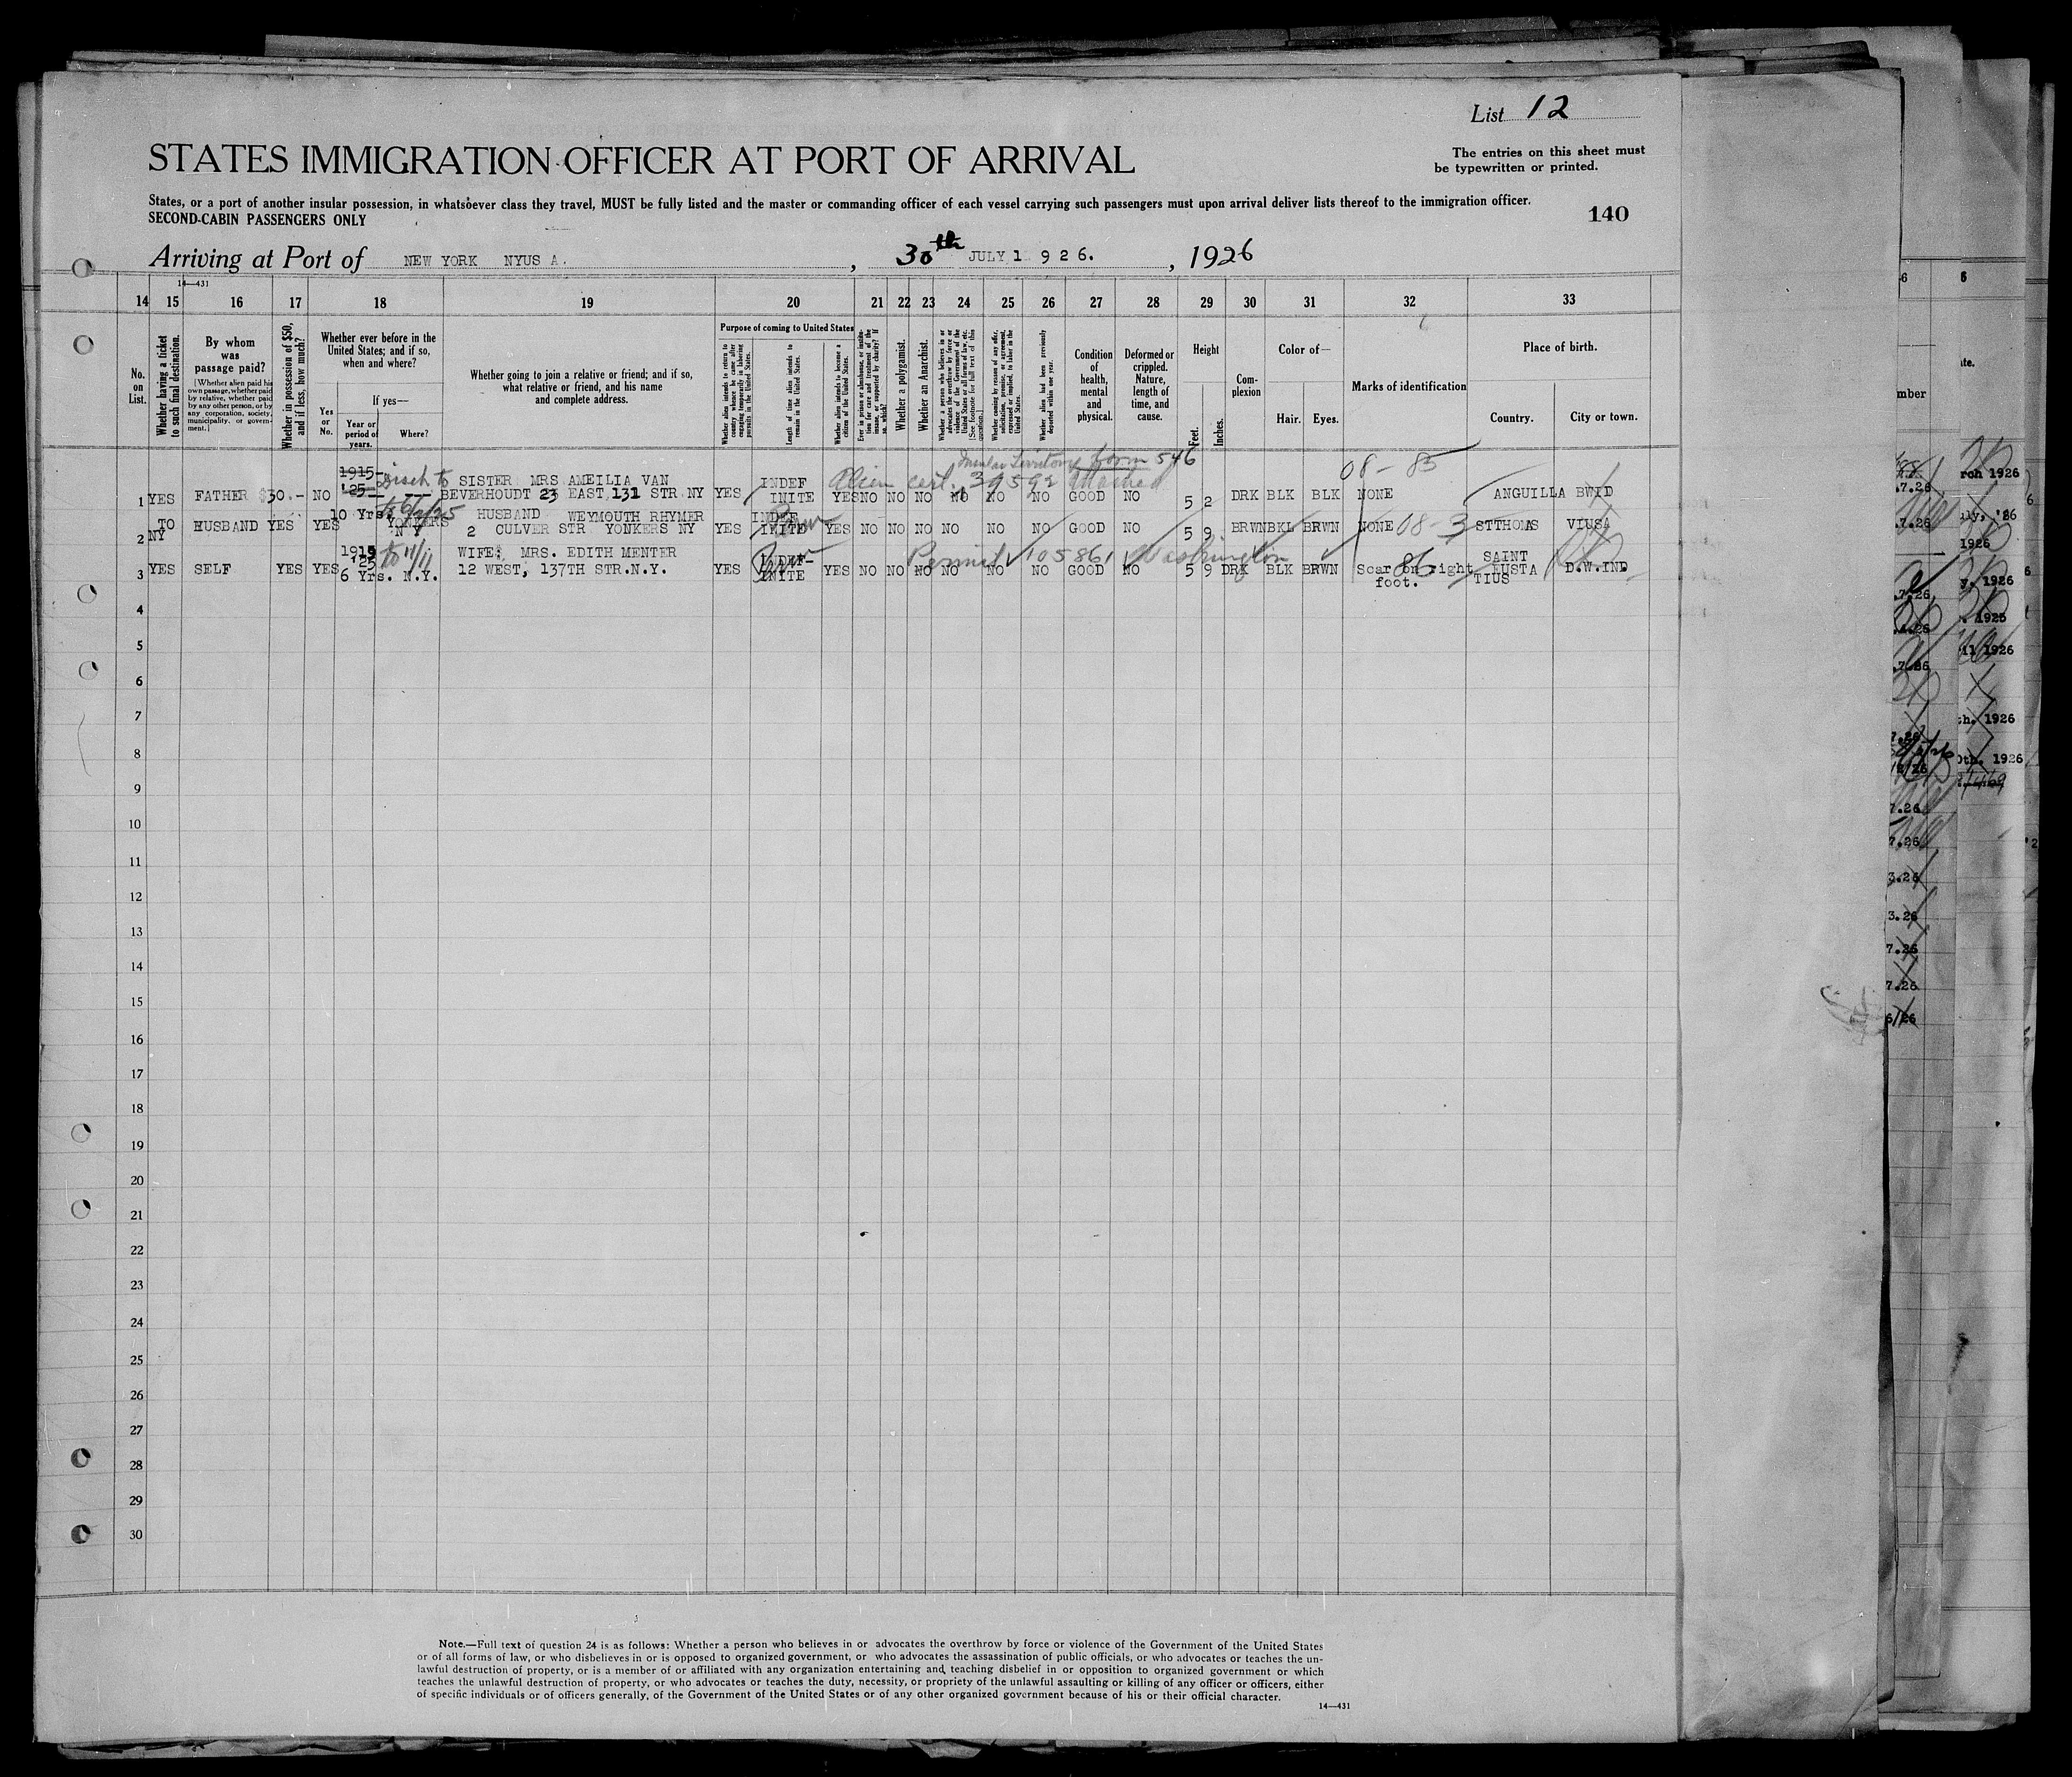 List 12
STATES IMMIGRATION OFFICER AT PORT OF ARRIVAL
The entries on this sheet must
be typewritten or printed.
States, or a port of another insular possession, in whatsoever class they travel, MUST be fully listed and the master or commanding officer of each vessel carrying such passengers must upon arrival deliver lists thereof to the immigration officer.
SECOND-CABIN PASSENGERS ONLY
140
Arriving at Port of NEW YORK NYUS A. , 30th JULY 1 9 2 6. , 1926
14—431
14 15 16 17 18 19 20 21 22 23 24 25 26 27 28 29 30 31 32 33
No. on List.
Whether having a ticket to such final destination.
By whom was passage paid?
[Whether alien paid his own passage, whether paid by relative, whether paid by any other person, or by any corporation, society, municipality, or government.]
Whether in possession of $50, and if less, how much?
Whether ever before in the United States; and if so, when and where?
Yes or No.
If yes—
Year or period of years.
Where?
Whether going to join a relative or friend; and if so, what relative or friend, and his name and complete address.
Purpose of coming to United States
Whether alien intends to return to country whence he came after engaging temporarily in laboring pursuits in the United States.
Length of time alien intends to remain in the United States.
Whether alien intends to become a citizen of the United States.
Ever in prison or almshouse, or institution for care and treatment of the insane, or supported by charity? If so, which?
Whether a polygamist.
Whether an Anarchist.
Whether a person who believes in or advocates the overthrow by force or violence of the Government of the United States or all forms of law, etc. [See footnote for full text of this question.]
Whether coming by reason of any offer, solicitation, promise, or agreement, expressed or implied, to labor in the United States.
Whether alien had been previously deported within one year.
Condition of health, mental and physical.
Deformed or crippled. Nature, length of time, and cause.
Height
Feet. Inches.
Complexion
Color of—
Hair. Eyes.
Marks of identification
Place of birth.
Country. City or town.
Insular Territory form 546
Alien cert. 39592 attached
08 - 85
1915- Disch to SISTER MRS AMEILIA VAN INDEF
1 YES FATHER $30.- NO '25- -- BEVERHOUDT 23 EAST 131 STR NY YES INITE YES NO NO NO NO NO NO GOOD NO 5 2 DRK BLK BLK NONE ANGUILLA BWID
TO 10 Yrs. YONKERS HUSBAND WEYMOUTH RHYMER INDEF
2 NY HUSBAND YES YES N Y 2 CULVER STR YONKERS NY YES INITE YES NO NO NO NO NO NO GOOD NO 5 9 BRWN BKL BRWN NONE 08-3 STTHOMAS VIUSA
1919 to 11/11 WIFE: MRS. EDITH MENTER INDEF- Permit 105861 Washington SAINT
3 YES SELF YES YES '25 12 WEST, 137TH STR.N.Y. YES INITE YES NO NO NO NO NO NO GOOD NO 5 9 DRK BLK BRWN Scar on right 86 EUSTA D.W.IND
6 Yrs. N.Y. foot. TIUS
4
5
6
7
8
9
10
11
12
13
14
15
16
17
18
19
20
21
22
23
24
25
26
27
28
29
30
Note.—Full text of question 24 is as follows: Whether a person who believes in or advocates the overthrow by force or violence of the Government of the United States
or of all forms of law, or who disbelieves in or is opposed to organized government, or who advocates the assassination of public officials, or who advocates or teaches the un-
lawful destruction of property, or is a member of or affiliated with any organization entertaining and teaching disbelief in or opposition to organized government or which
teaches the unlawful destruction of property, or who advocates or teaches the duty, necessity, or propriety of the unlawful assaulting or killing of any officer or officers, either
of specific individuals or of officers generally, of the Government of the United States or of any other organized government because of his or their official character.
14—431